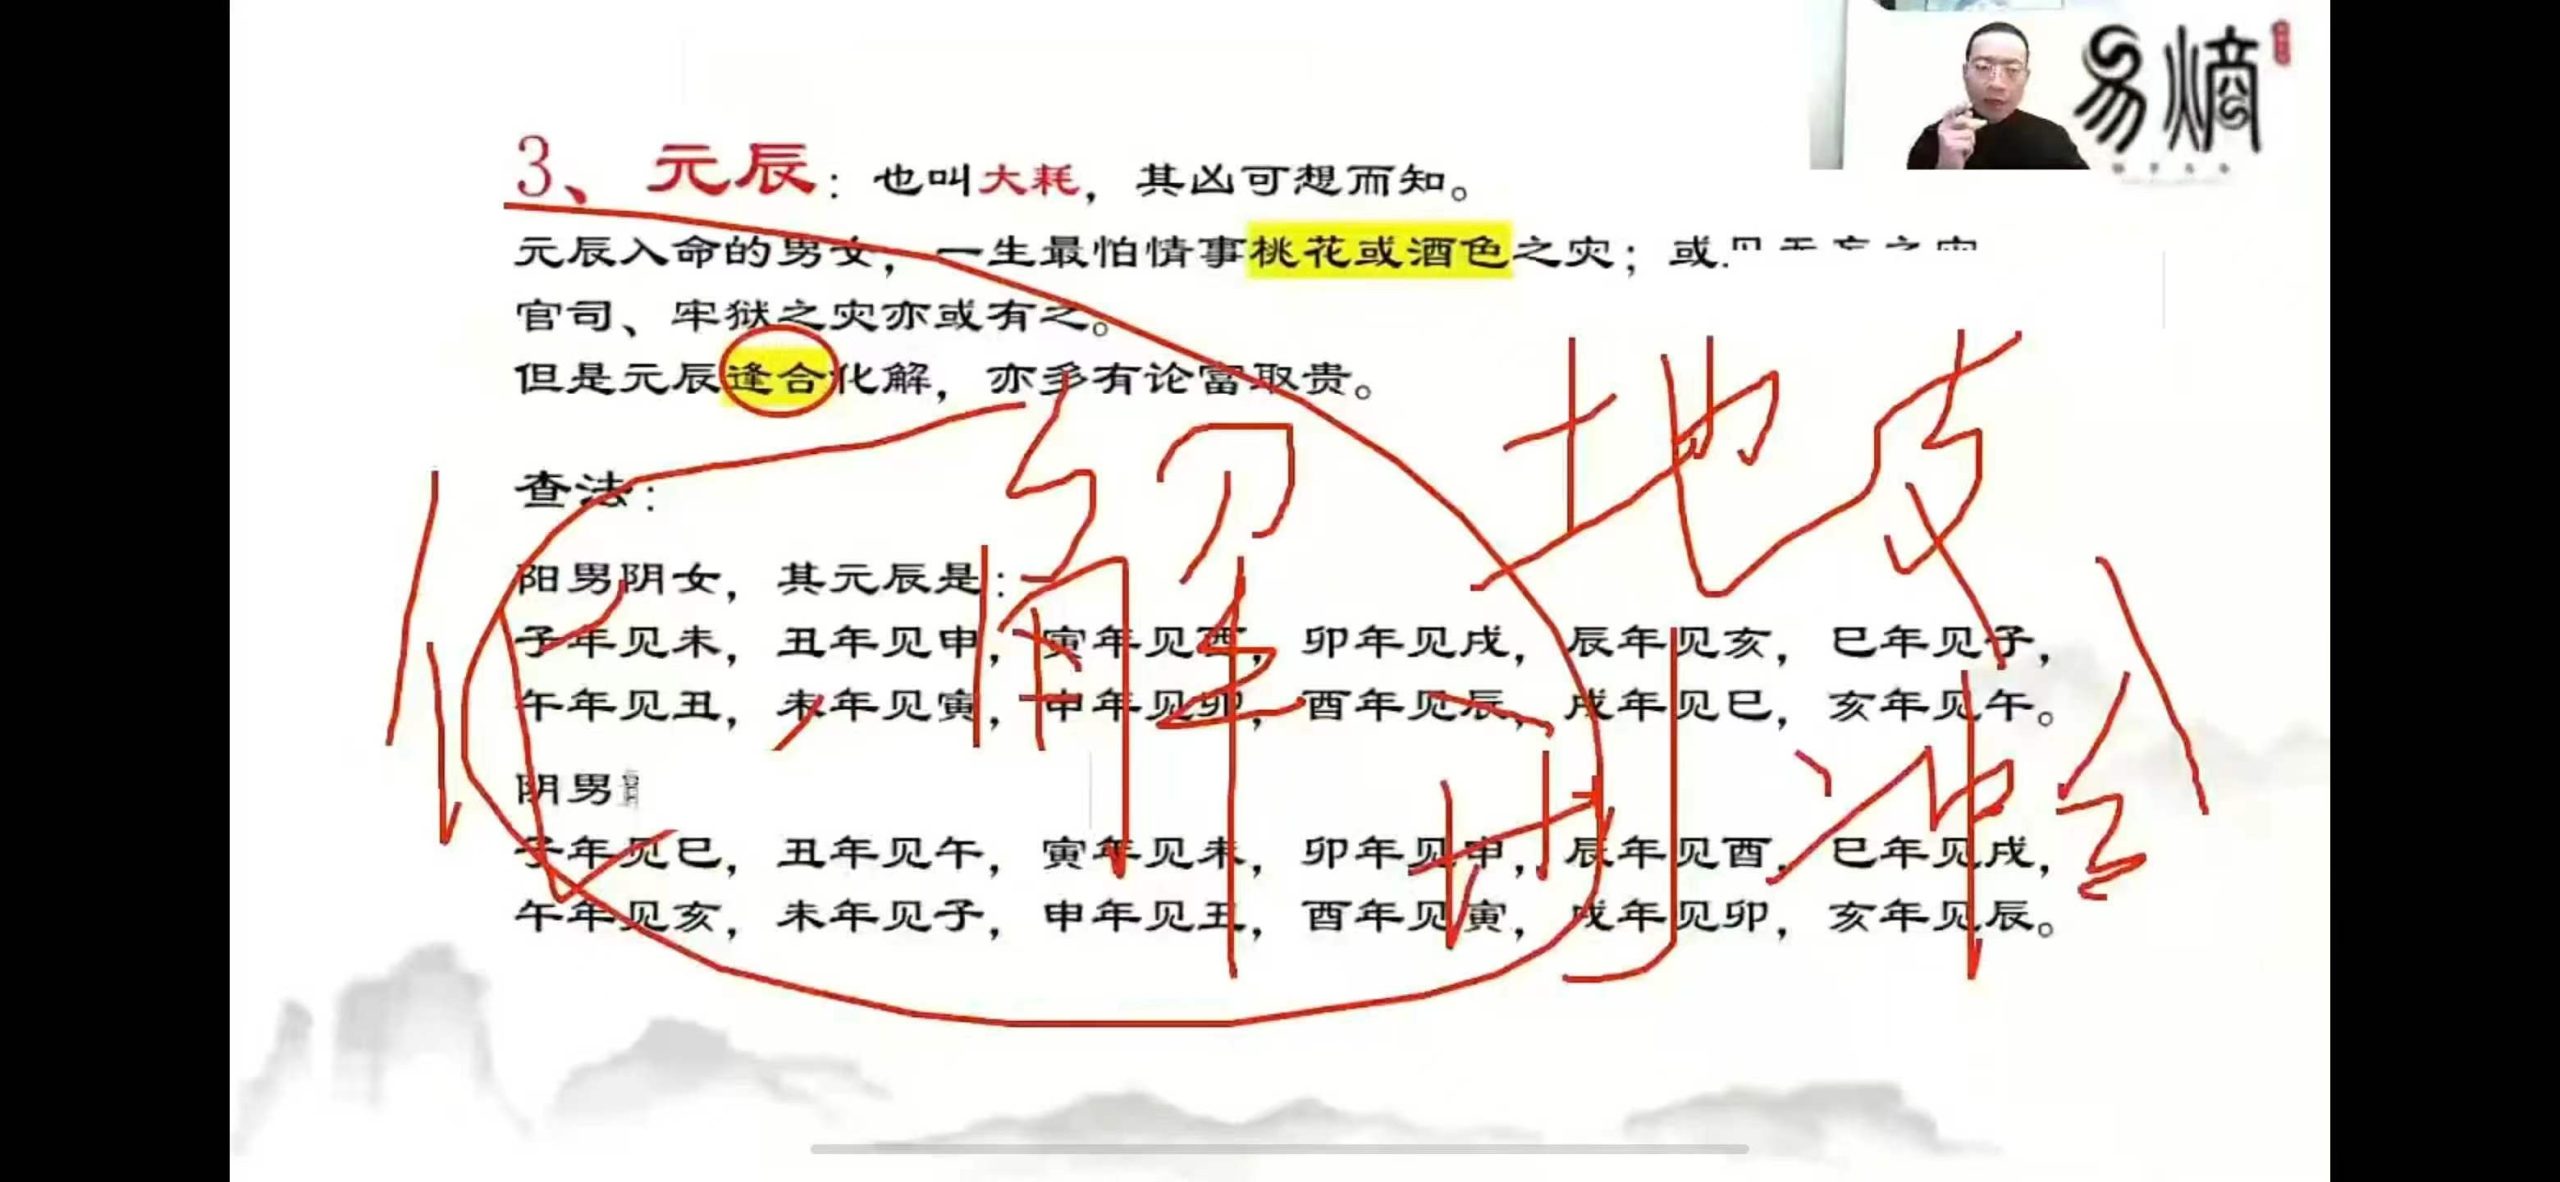 易熵
3、元辰：也叫大耗，其凶可想而知。
元辰入命的男女，一生最怕情事桃花或酒色之灾；或
官司、牢狱之灾亦或有之。
但是元辰逢合化解，亦多有论富取贵。
查法：
阳男阴女，其元辰是：
子年见未，丑年见申，寅年见酉，卯年见戌，辰年见亥，巳年见子，
午年见丑，未年见寅，申年见卯，酉年见辰，戌年见巳，亥年见午。
阴男
子年见巳，丑年见午，寅年见未，卯年见申，辰年见酉，巳年见戌，
午年见亥，未年见子，申年见丑，酉年见寅，戌年见卯，亥年见辰。
化解
地支
冲合